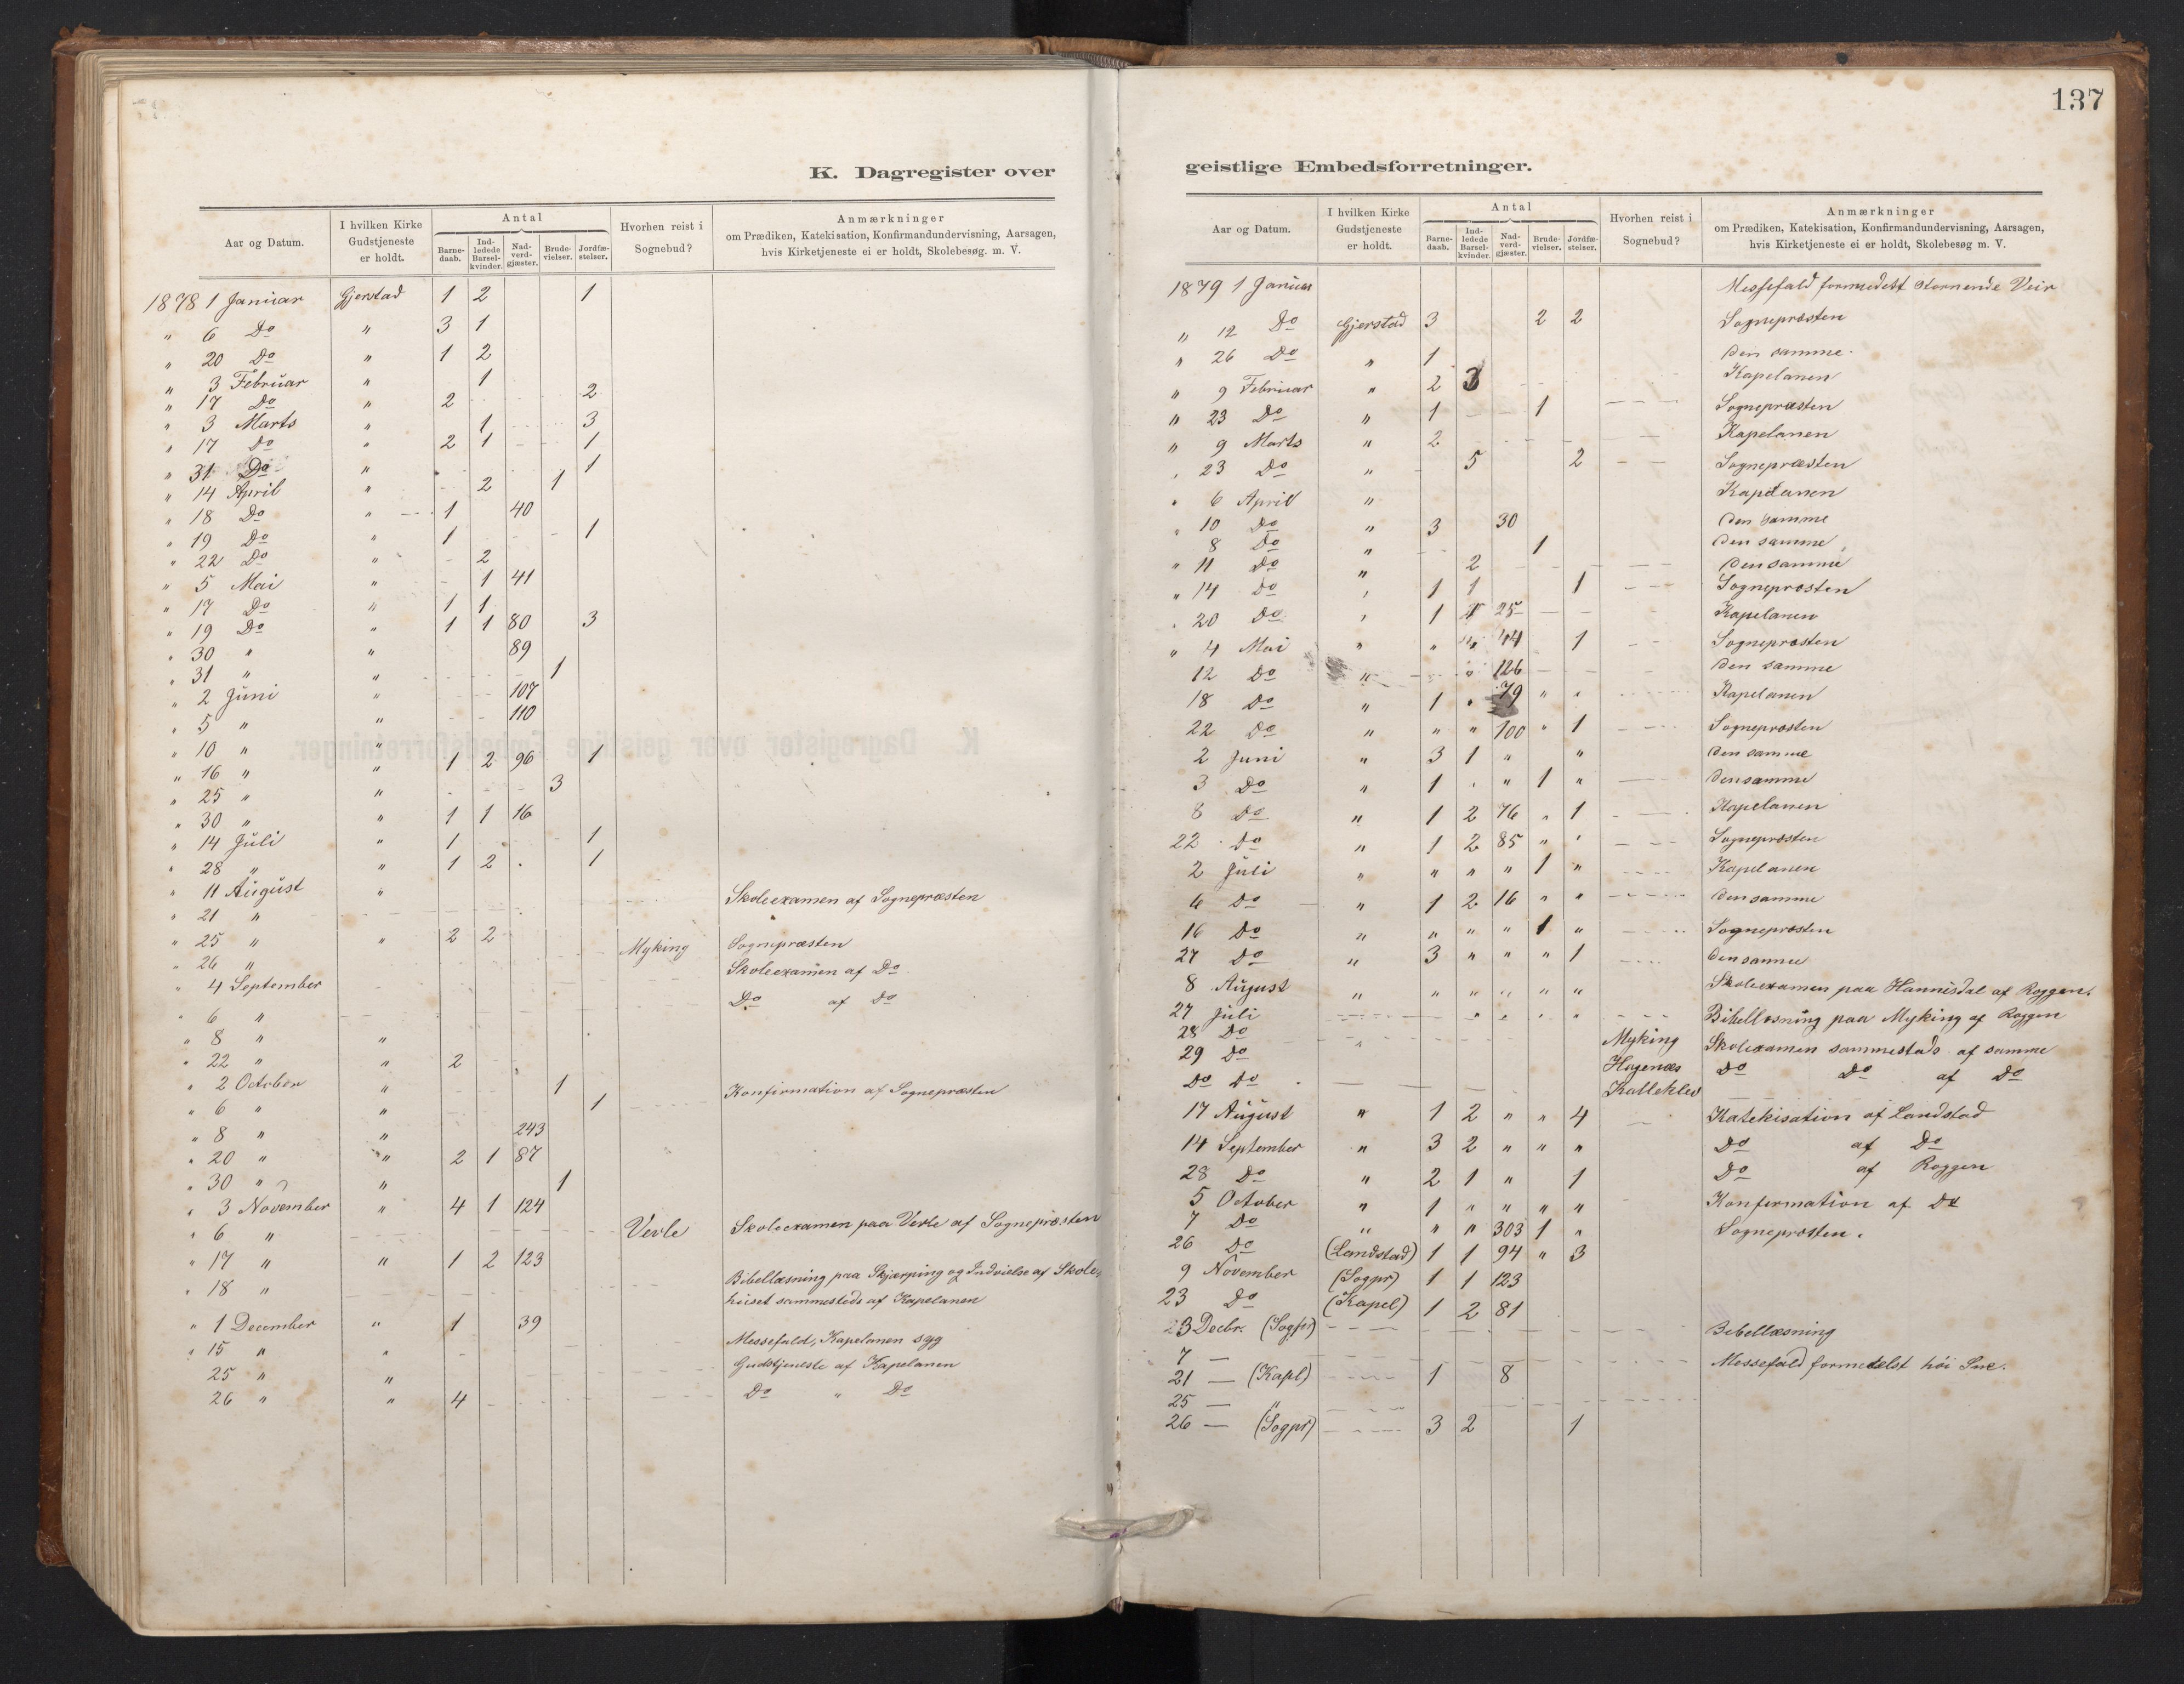 137
K. Dagregister over
Aar og Datum. I hvilken Kirke Gudstjeneste er holdt. Antal Barnedaab. Indledede Barselkvinder. Nadverdgjæster. Brudevielser. Jordfæstelser. Hvorhen reist i Sognebud? Anmærkninger om Prædiken, Katekisation, Konfirmandundervisning, Aarsagen, hvis Kirketjeneste ei er holdt, Skolebesøg. m. V.
1878 1 Januar Gjerstad 1 2 1
" 6 Do " 3 1
" 20 Do " 1 2
" 3 Februar " 1
" 17 Do " 2 2
" 3 Marts " 1 3
" 17 Do " 2 1 1
" 31 Do " 1
" 14 April " 2 1
" 18 Do " 1 40
" 19 Do " 1 1
" 22 Do " 2
" 5 Mai " 1 41
" 17 Do " 1 1
" 19 Do " 1 1 80 3
" 30 " " 89
" 31 " " 1
" 2 Juni " 107
" 5 " " 110
" 10 " "
" 16 " " 1 2 96 1
" 25 " " 3
" 30 " " 1 1 16
" 14 Juli " 1 1
" 28 " " 1 2 1
" 11 August "
" 21 " Skoleexamen af Sognepræsten
" 25 " " 2 2 Sognepræsten
" 26 " Myking Skoleexamen af Do
" 4 September Do af Do
" 6 "
" 8 " "
" 22 " " 2
" 2 October " 1 Konfirmation af Sognepræsten
" 6 " " 1
" 8 " " 243
" 20 " " 2 1 87
" 30 " " 1
" 3 November " 4 1 124
" 6 " Verle Skoleexamen paa Verle af Sognepræsten
" 17 " " 1 2 123
" 18 " Bibellæsning paa Skjærping og Indvielse af Skole-
huset sammesteds af Kapelanen
" 1 December " 1 39
" 15 " " Messefald, Kapelanen syg
25 " " Gudstjeneste af Kapelanen
26 " " 4 Do " Do
geistlige Embedsforretninger.
Aar og Datum. I hvilken Kirke Gudstjeneste er holdt. Antal Barnedaab. Indledede Barselkvinder. Nadverdgjæster. Brudevielser. Jordfæstelser. Hvorhen reist i Sognebud? Anmærkninger om Prædiken, Katekisation, Konfirmandundervisning, Aarsagen, hvis Kirketjeneste ei er holdt, Skolebesøg m. V.
1879 1 Januar Messefald formedelst stormende Veir
" 12 Do Gjerstad 3 2 2 Sognepræsten
" 26 Do " 1 Den samme
" 9 Februar " 2 3 Kapelanen
" 23 Do " 1 1 Sognepræsten
" 9 Marts " 2 Kapelanen
" 23 Do " 5 2 Sognepræsten
" 6 April " Kapelanen
" 10 Do " 3 30 Den samme
8 Do " 1 Den samme
" 11 Do " 2 Den samme
" 14 Do " 1 1 1 Sognepræsten
" 20 Do " 1 1 25 Kapelanen
" 4 Mai " " " 44 1 Sognepræsten
12 Do " " 126 Den samme
18 Do " 1 " 79 " " Kapelanen
22 Do " " " 100 " 1 Sognepræsten
2 Juni " 3 1 " " Den samme
3 Do " 1 " " 1 " Den samme
8 Do " 1 2 76 " 1 Kapelanen
22 Do " 1 2 85 " " Sognepræsten
2 Juli " " " " 1 " Kapelanen
6 Do " 1 2 16 " " Den samme
16 Do " " " " 1 " Sognepræsten
27 Do " 3 " " " 1 Den samme
8 August " " " " " " Skoleexamen paa Hannisdal af Roggen.
27 Juli " " " " Bibellæsning paa Myking af Roggen
28 Do Myking Skoleexamen sammesteds af samme
29 Do Hagenæs Do Do af Do
Do Do Kalleklev
17 August " 1 2 " " 4 Katekisation af Landstad
14 September " 3 2 " " " Do af Do
28 Do " 2 1 " 1 Do af Roggen
5 October " 1 " " " " Konfirmation af Do
7 Do " " " 303 1 " Sognepræsten.
26 Do (Landstad) 1 1 94 " 3
9 November (Sogpr) 1 1 123
23 Do (Kapel) 1 2 81
23 Decbr. (Sogpr) Bibellæsning
7 — Messefald formedelst høi Sne.
21 — (Kapl) 1 8
25 — "
26 — (Sogpr) 3 2 1